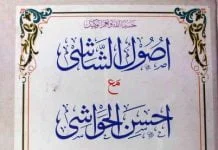 اصول الشاشی
مع
احسن الحواشی